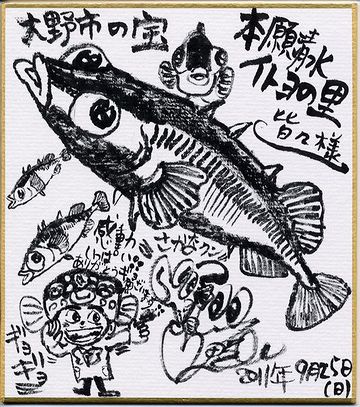 本願清水
イトヨの里
皆々様
大野市の宝
感動力
ありがとうギョ
さかなクン
ギョギョ
2011年9月25日
(日)